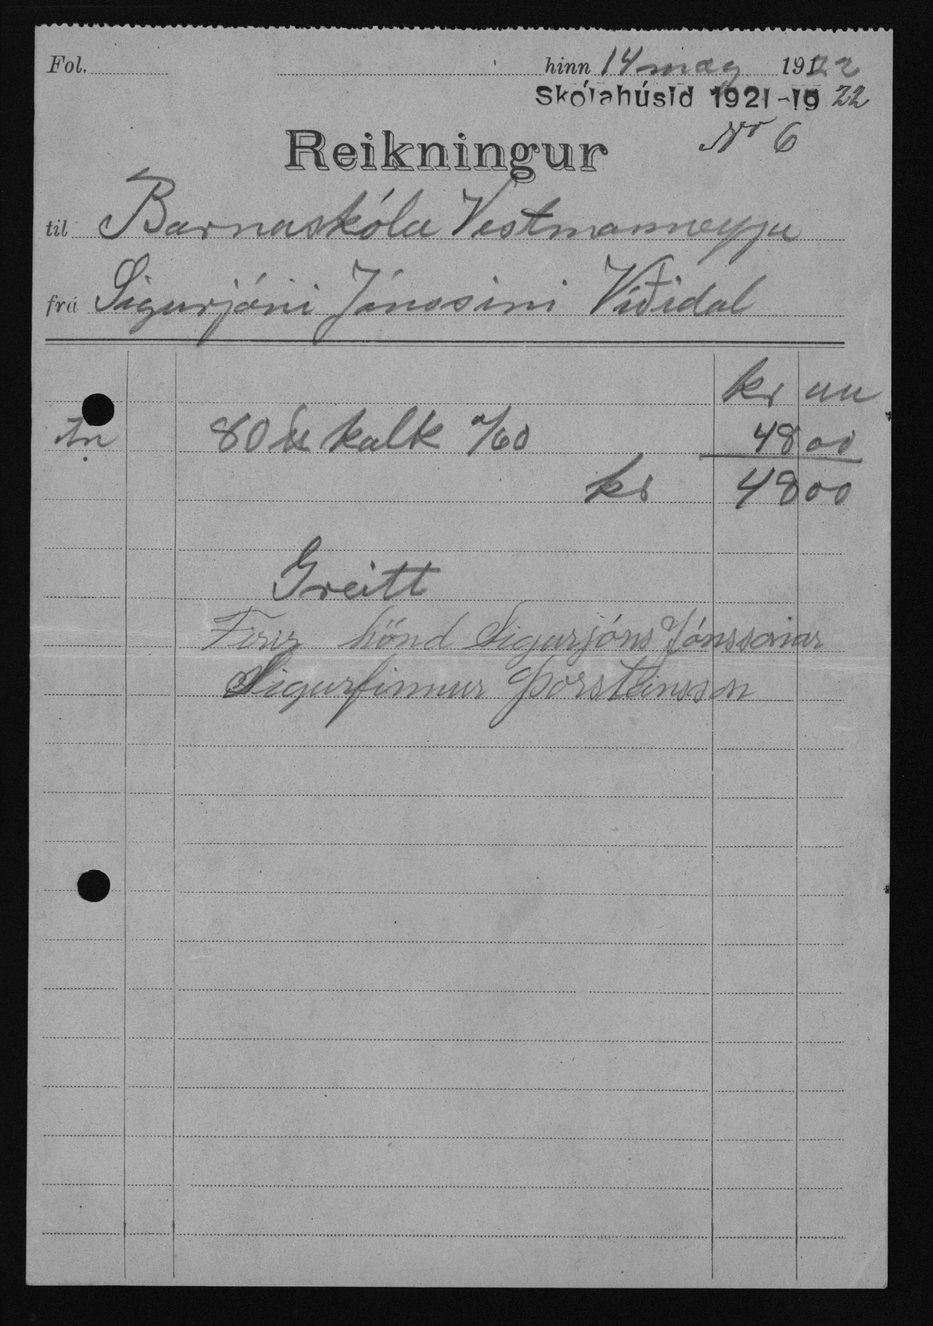 Fol. hinn 14 may 1922
Skólahúsid 1921-1922
Nr 6
Reikningur
til Barnaskóla Vestmanneyju
frá Sigurjóni Jónssini Víðidal
kr au
80 kalk á/60 48 00
kr 48 00
Greitt
Firir hönd Sigurjóns Jónssonar
Sigurfinnur Þorsteinsson